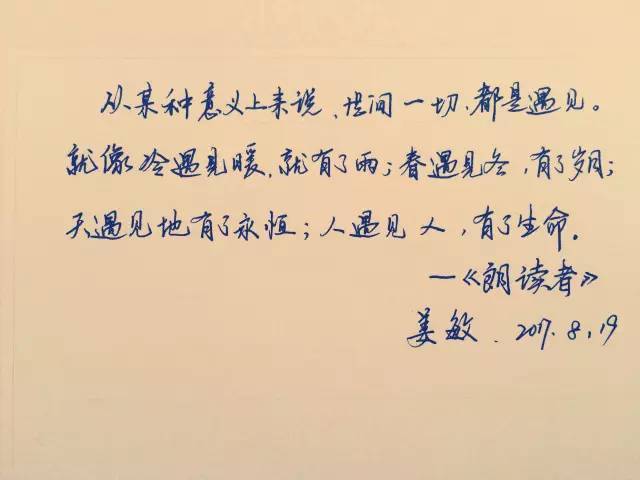 从某种意义上来说、世间一切、都是遇见。
就像冷遇见暖、就有了雨；春遇见冬，有了岁月；
天遇见地有了永恒；人遇见人，有了生命。
—《朗读者》
姜敏．2017.8.19